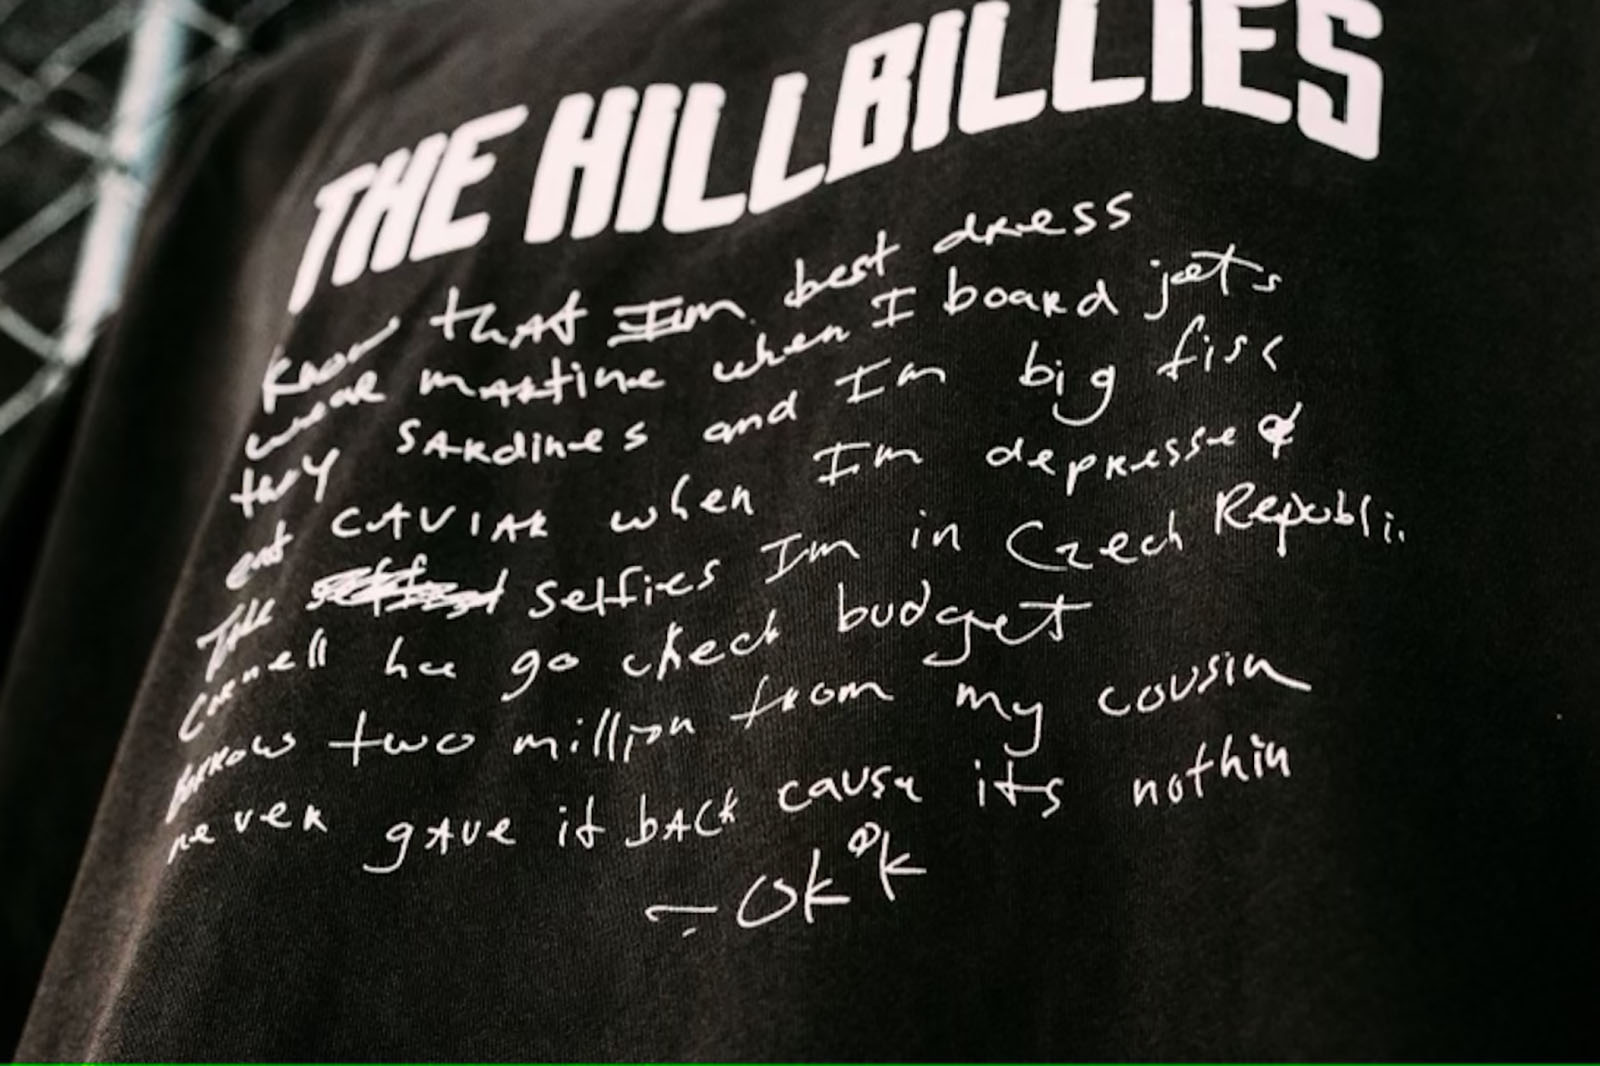 THE HILLBILLIES
know that Im best dress
wear martine when I board jets
they sardines and I'm big fish
eat CAVIAR when I'm depressed
Take selfies Im in Czech Republi
Cornell he go check budget
borrow two million from my cousin
never gave it back cause its nothin
- ok ok